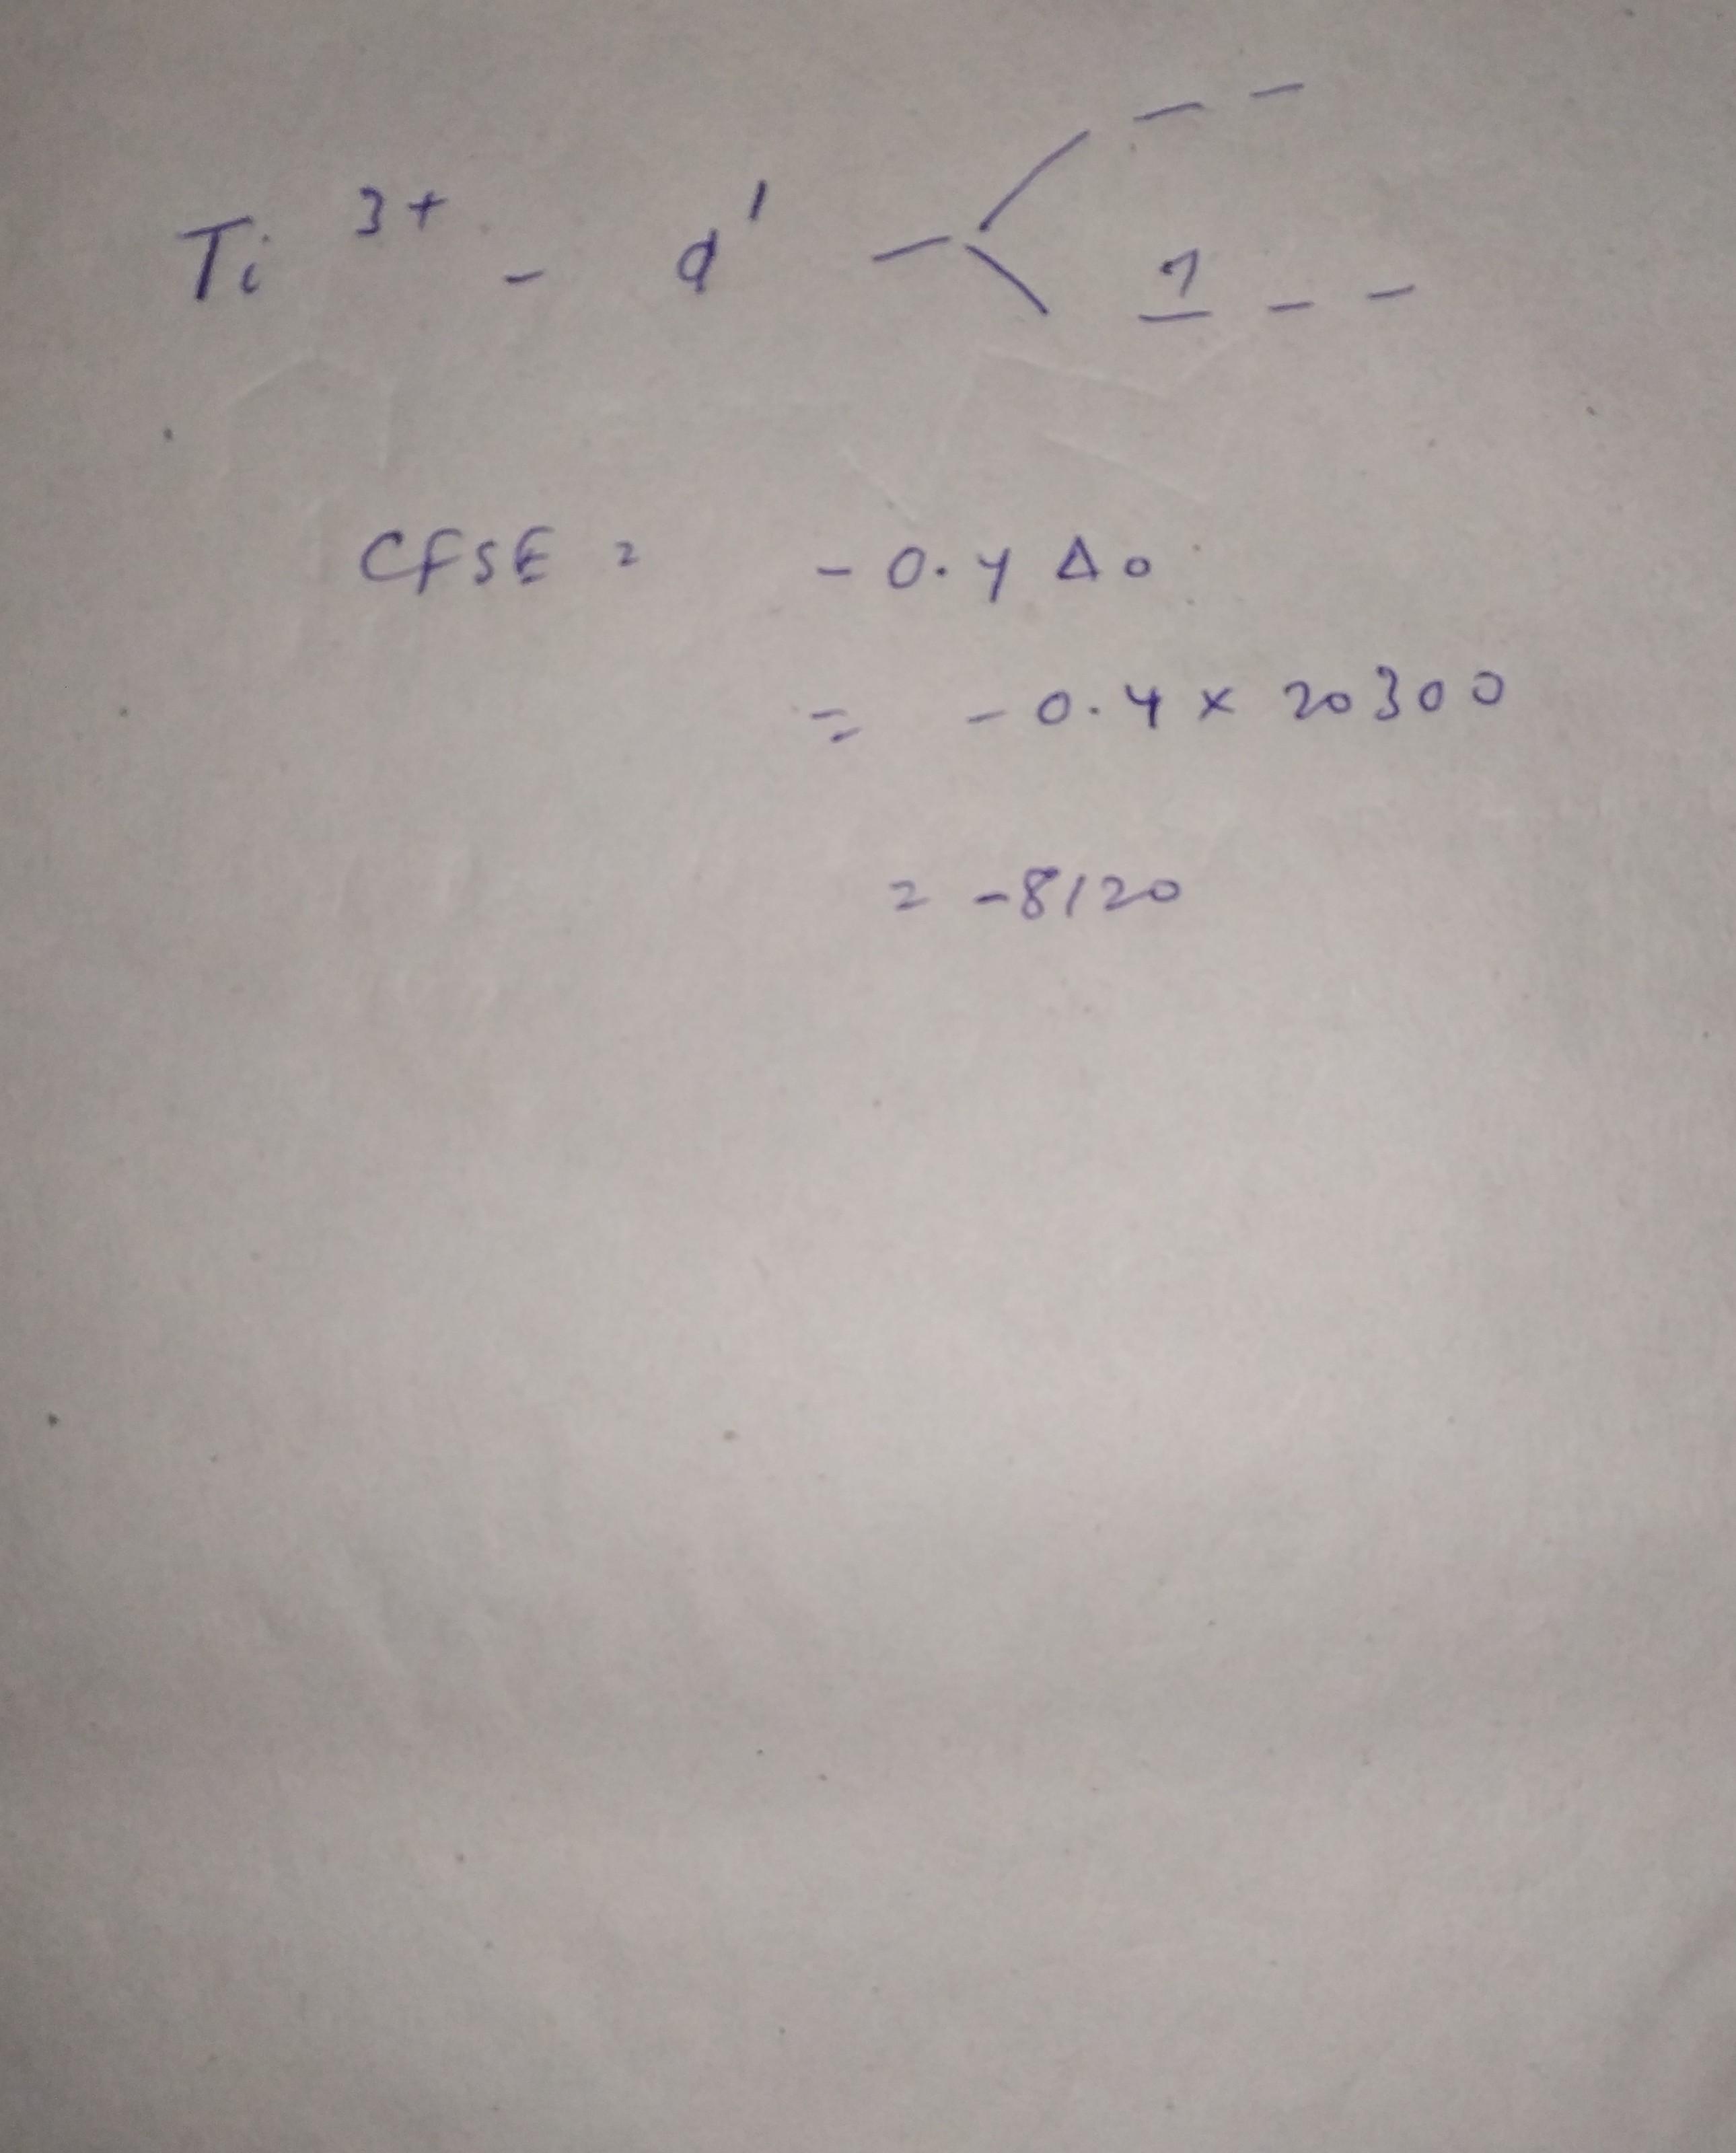 Ti 3+ - d 1
1
CFSE = - 0.4 Δo
= - 0.4 x 20300
= - 8120